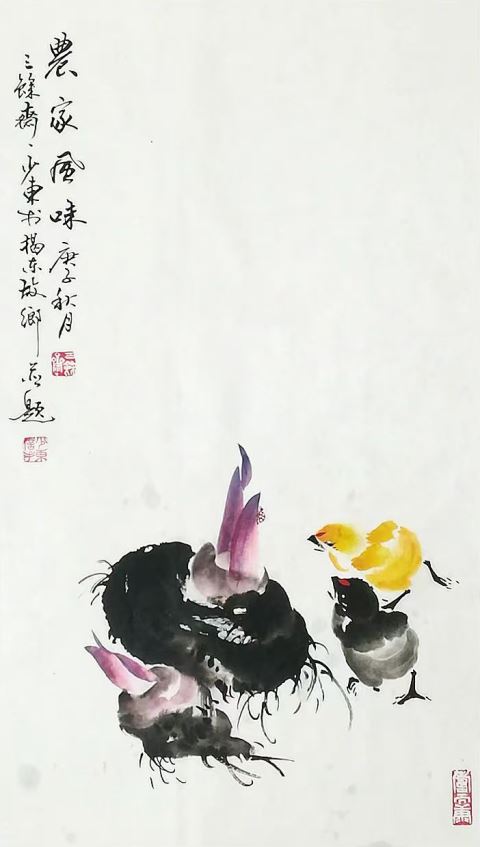 農家風味 庚子秋月
三餘齋、少東於揭东故鄉並題